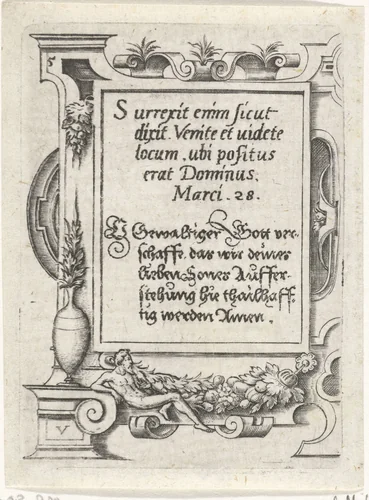 5
Surrexit enim sicut
dixit. Venite et uidete
locum, ubi positus
erat Dominus.
Marci. 28.
O Gewaltiger Gott ver-
schaffe, das wir deines
lieben Sones Auffer-
stehung hie thailhaff-
tig werden Amen.
V